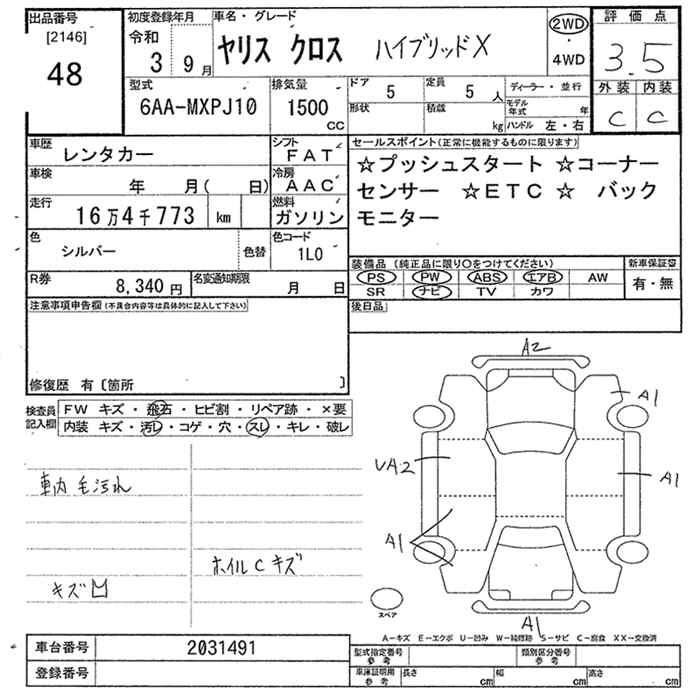 出品番号
[2146]
48
初度登録年月
令和
3 9月
車名・グレード
ヤリス クロス ハイブリッドX
2WD
・
4WD
評価点
3.5
外装 内装
C C
型式
6AA-MXPJ10
排気量
1500
CC
ドア
5
定員
5 人
形状
積載
kg
ディーラー・並行
モデル年式 年
ハンドル 左・右
車歴
レンタカー
シフト
FAT
車検
年 月( 日)
冷房
AAC
走行
16万4千773 km
燃料
ガソリン
色
シルバー
色替
色コード
1L0
R券
8,340 円
名変通知期限
月 日
セールスポイント(正常に機能するものに限ります)
☆プッシュスタート ☆コーナー
センサー ☆ETC☆ バック
モニター
装備品 (純正品に限り○をつけてください)
PS PW ABS エアB AW
SR ナビ TV カワ
新車保証書
有・無
後日品
注意事項申告欄(不具合内容等は具体的に記入して下さい)
修復歴 有〔箇所 〕
検査員
記入欄
FW キズ・飛石・ヒビ割・リペア跡・×要
内装 キズ・汚レ・コゲ・穴・スレ・キレ・破レ
車内 毛汚れ
ホイルC キズ
キズ
A2
A1
UA2
A1
A1
A1
スペア
A-キズ E-エクボ U-凹み W-補修跡 S-サビ C-腐食 XX-交換済
車台番号
2031491
登録番号
型式指定番号
参考
類別区分番号
参考
車庫証明用
参考
長さ cm
幅 cm
高さ cm